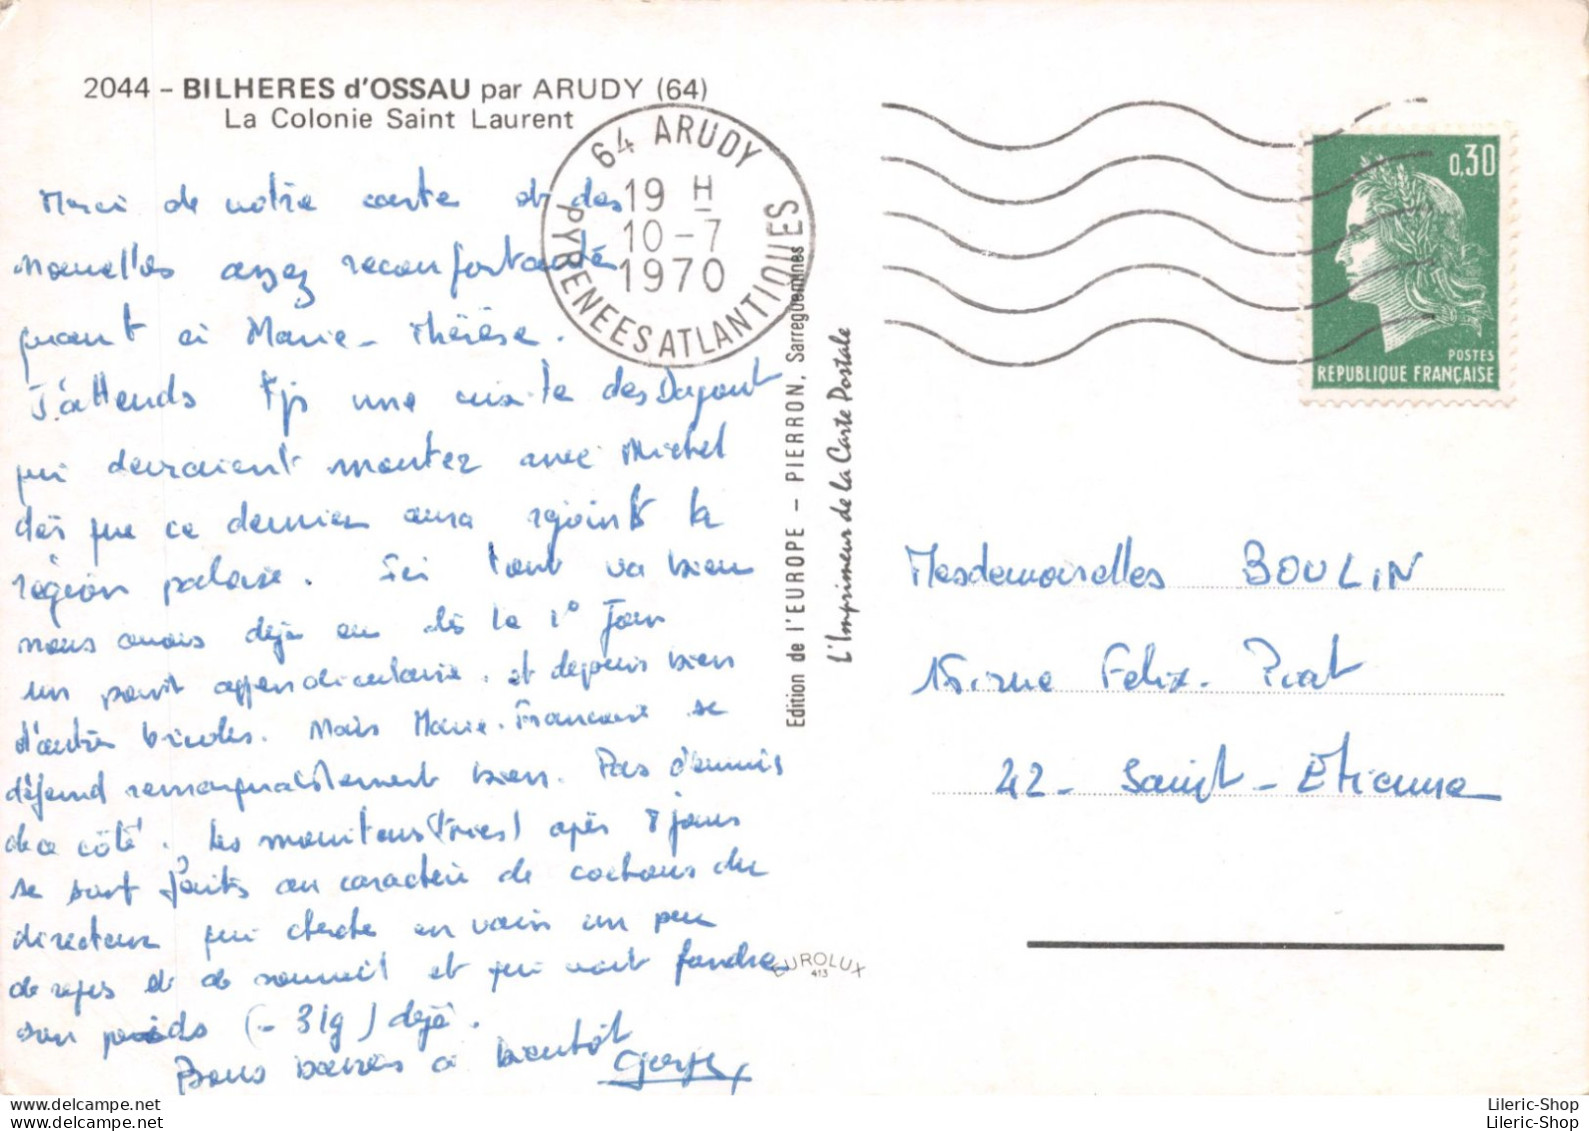 2044 - BILHERES d'OSSAU par ARUDY (64)
La Colonie Saint Laurent
64 ARUDY
19 H
10-7
1970
PYRENEES ATLANTIQUES
0,30
POSTES
REPUBLIQUE FRANÇAISE
Merci de votre carte et des
nouvelles assez reconfortantes
quant à Marie-Thérèse.
J'attends une visite des
qui devraient monter avec Michel
dès que ce dernier aura rejoint la
région paloise. Ici tout va bien
nous avons déjà eu dès le 1° jour
un point appendiculaire. et depuis bien
d'autres bricoles. Mais Marie-Francoise se
défend remarquablement bien. Pas d'ennuis
de ce côté. Les moniteurs (trices) après 8 jours
se sont faits au caractère de cochons du
directeur qui cherche en vain un peu
de repos et de sommeil et qui voit fondre
son poids (- 3kg) déjà.
Bons baisers à bientôt
Edition de l'EUROPE - PIERRON, Sarreguemines
L'Imprimeur de la Carte Postale
EUROLUX
413
Mesdemoiselles BOULIN
15, rue Felix-Piat
42 - Saint-Etienne
Lileric-Shop
Lileric-Shop
Lileric-Shop
Lileric-Shop